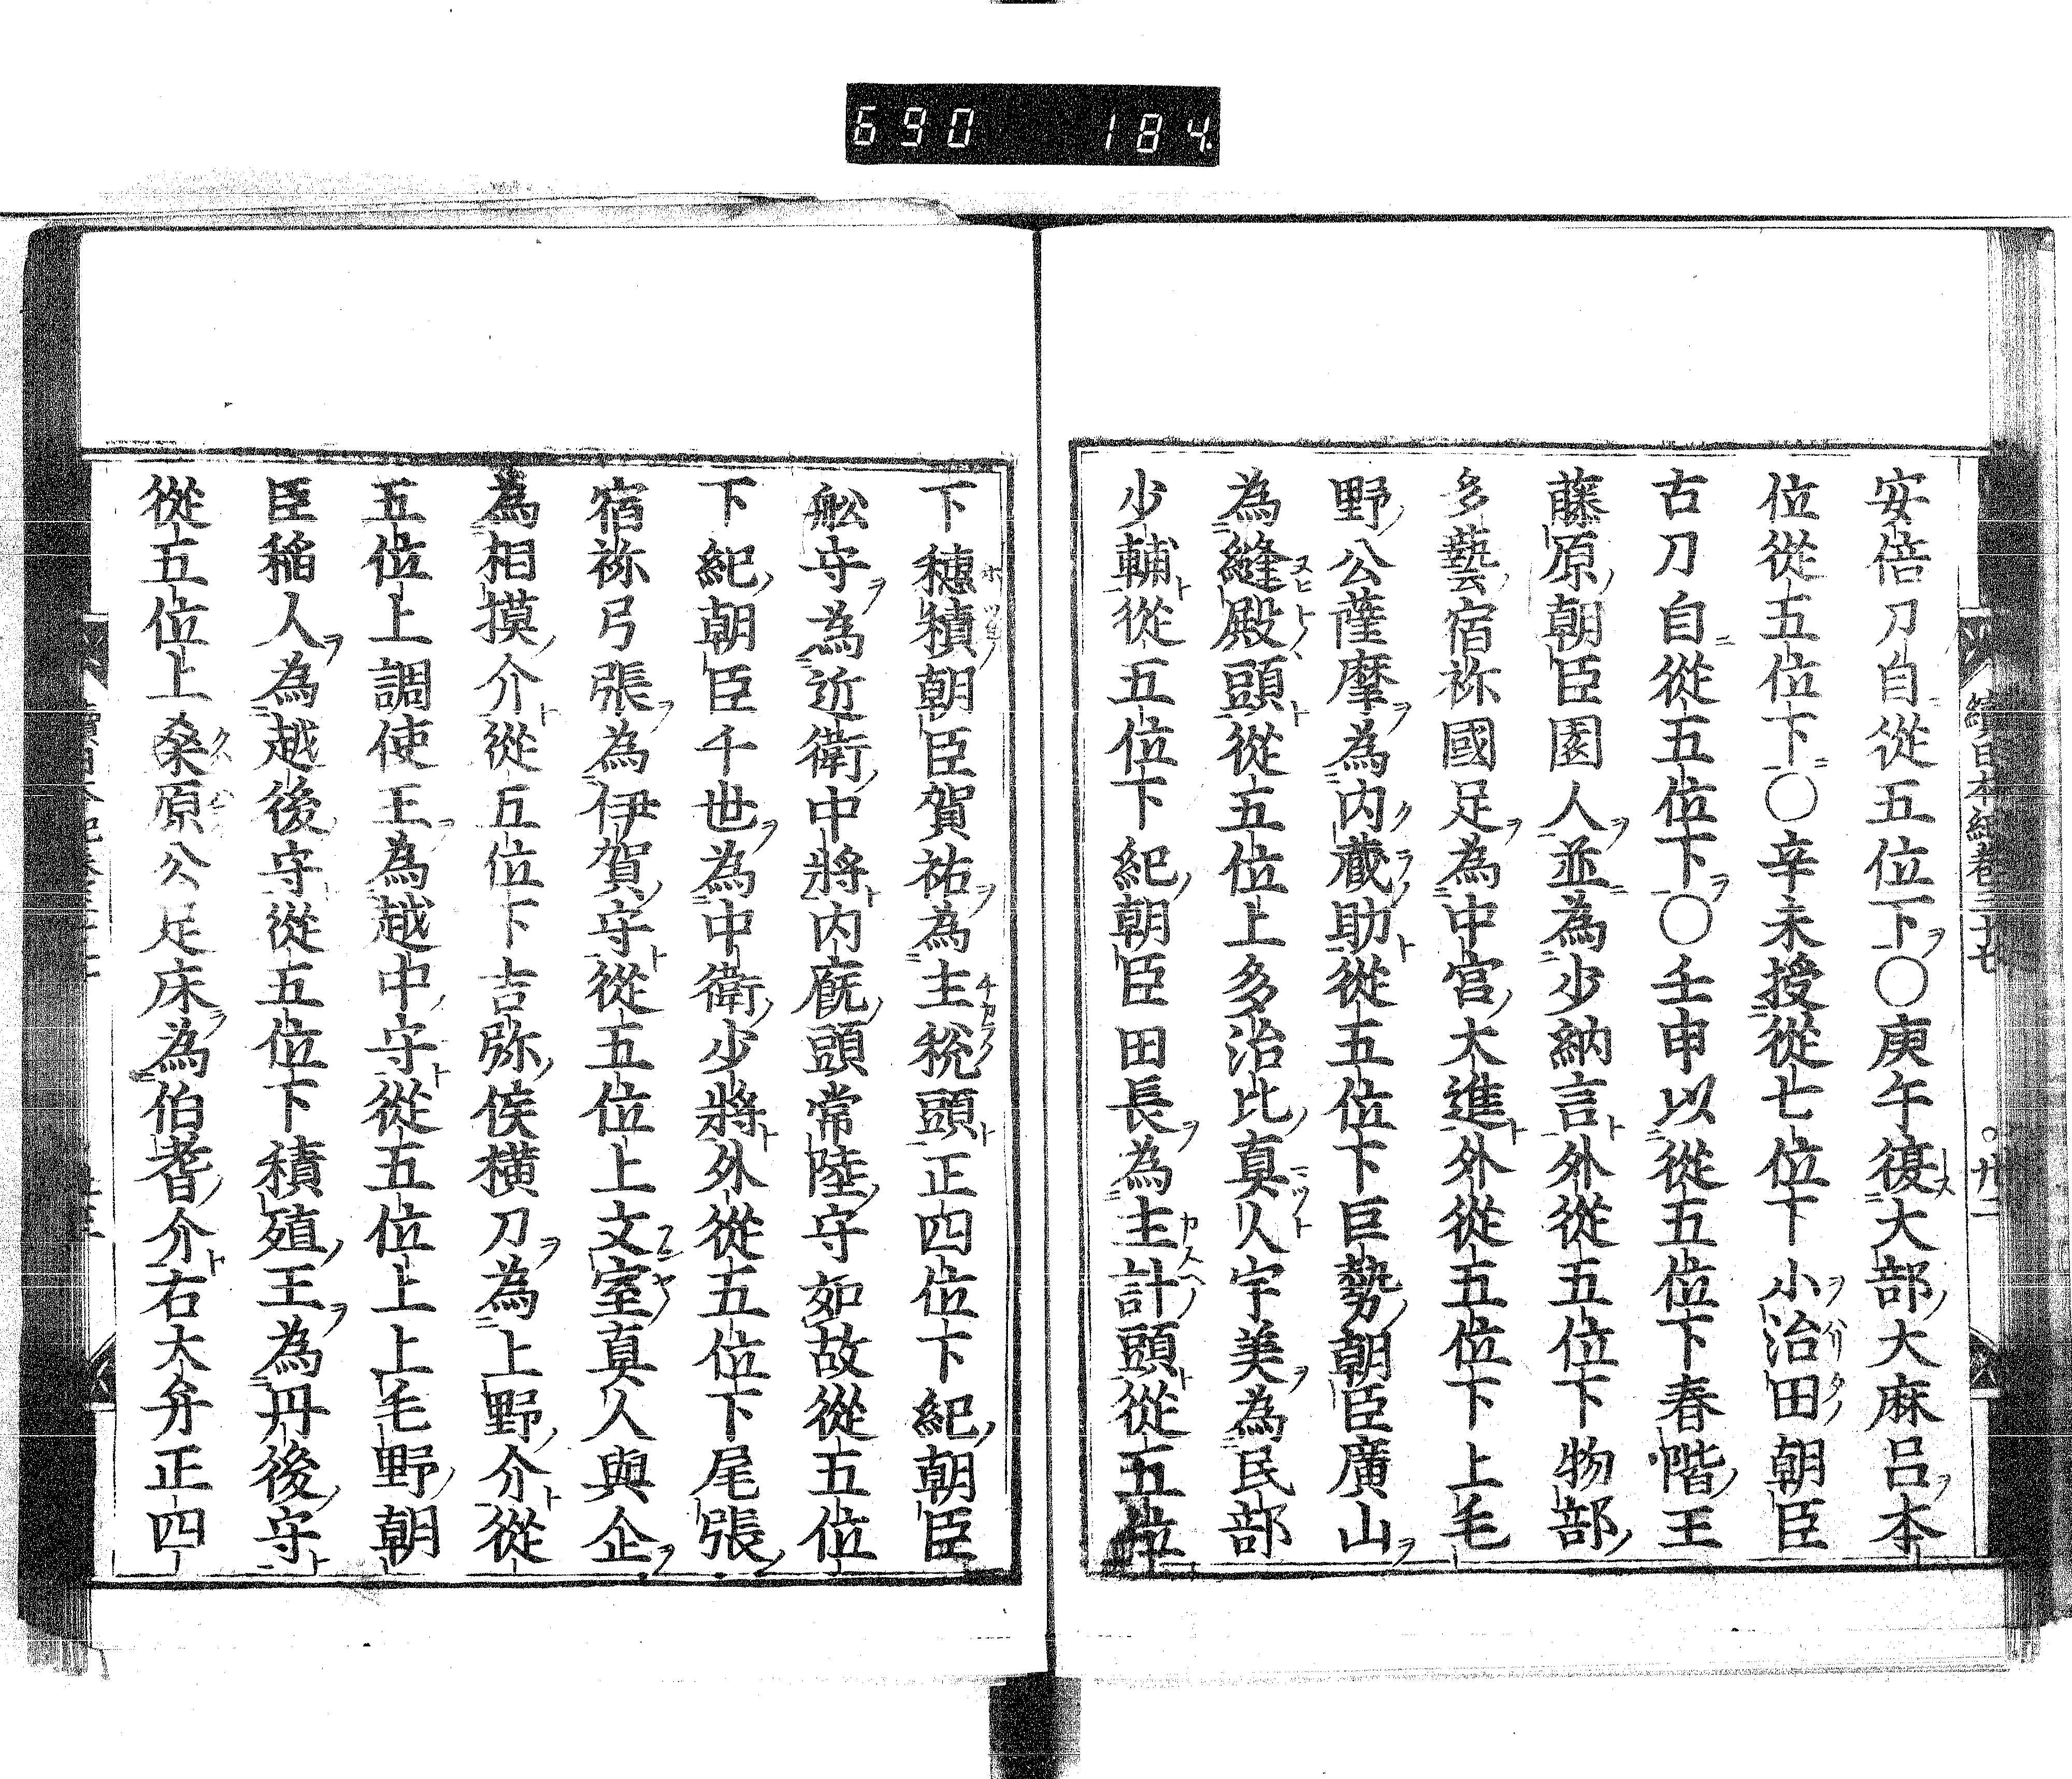 690 184
續日本紀卷三十七
安倍刀自從五位下○庚午復大部大麻呂本
位從五位下○辛未授從七位下小治田朝臣
古刀自從五位下○壬申以從五位下春階王
藤原朝臣園人並為少納言外從五位下物部
多藝宿祢國足為中宮大進外從五位下上毛
野公薩摩為内藏助從五位下巨勢朝臣廣山
為縫殿頭從五位上多治比真人宇美為民部
少輔從五位下紀朝臣田長為主計頭從五位
下穗積朝臣賀祐為主稅頭正四位下紀朝臣
舩守為近衛中將内廐頭常陸守如故從五位
下紀朝臣千世為中衛少將外從五位下尾張
宿祢弓張為伊賀守從五位上文室真人與企
為相摸介從五位下吉弥侯横刀為上野介從
五位上調使王為越中守從五位上上毛野朝
臣稲人為越後守從五位下積殖王為丹後守
從五位上桑原公足床為伯耆介右大弁正四